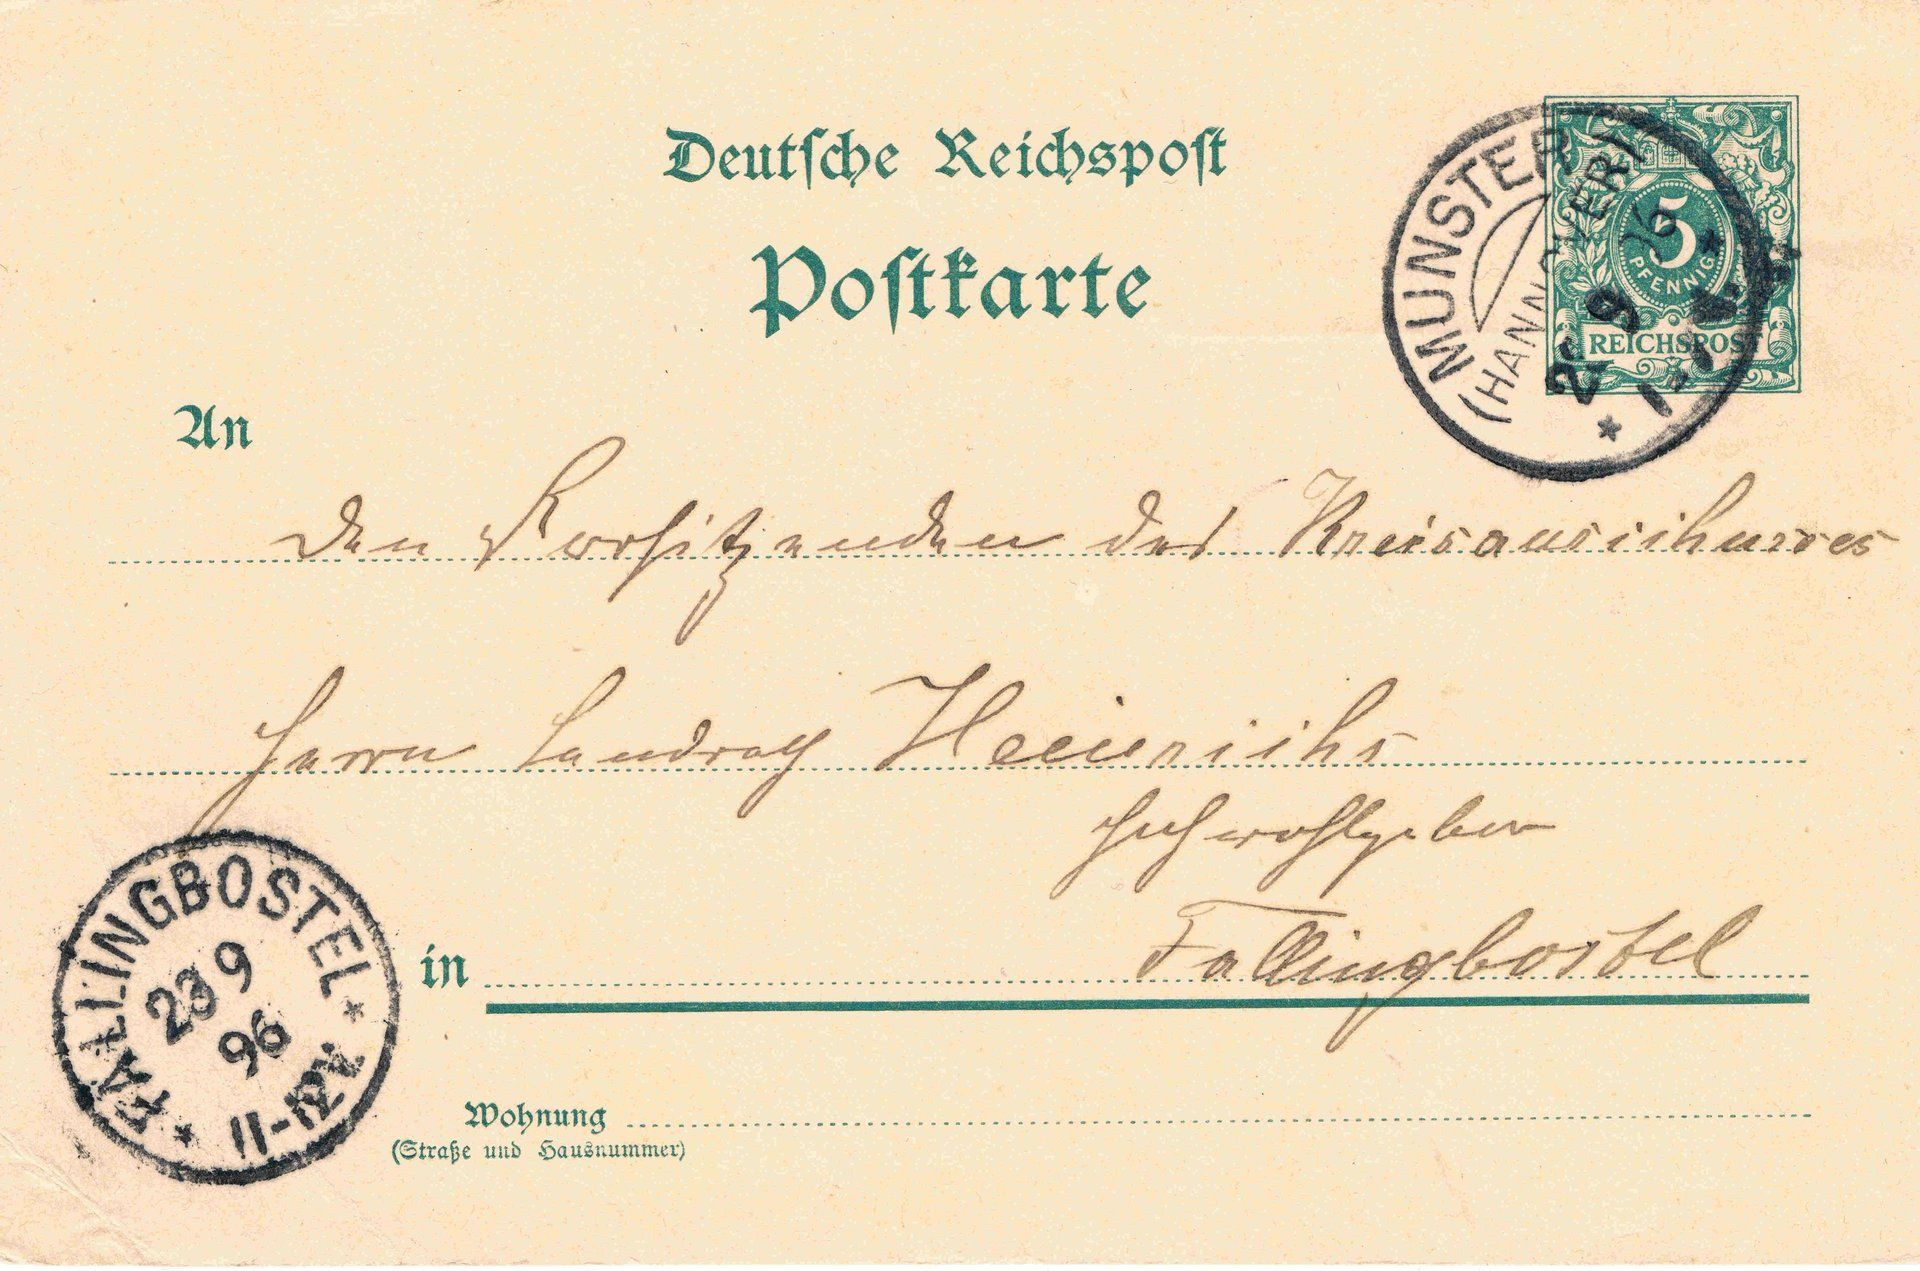 Deutsche Reichspost
Postkarte
MUNSTER
(HANNOVER)
9
96
5
PFENNIG
REICHSPOST
An
den Vorsitzenden des Kreisausschusses
Herrn Landrath Heinrichs
Hochwohlgeboren
in Fallingbostel
FALLINGBOSTEL
23 9
96
11-12V.
Wohnung
(Straße und Hausnummer)